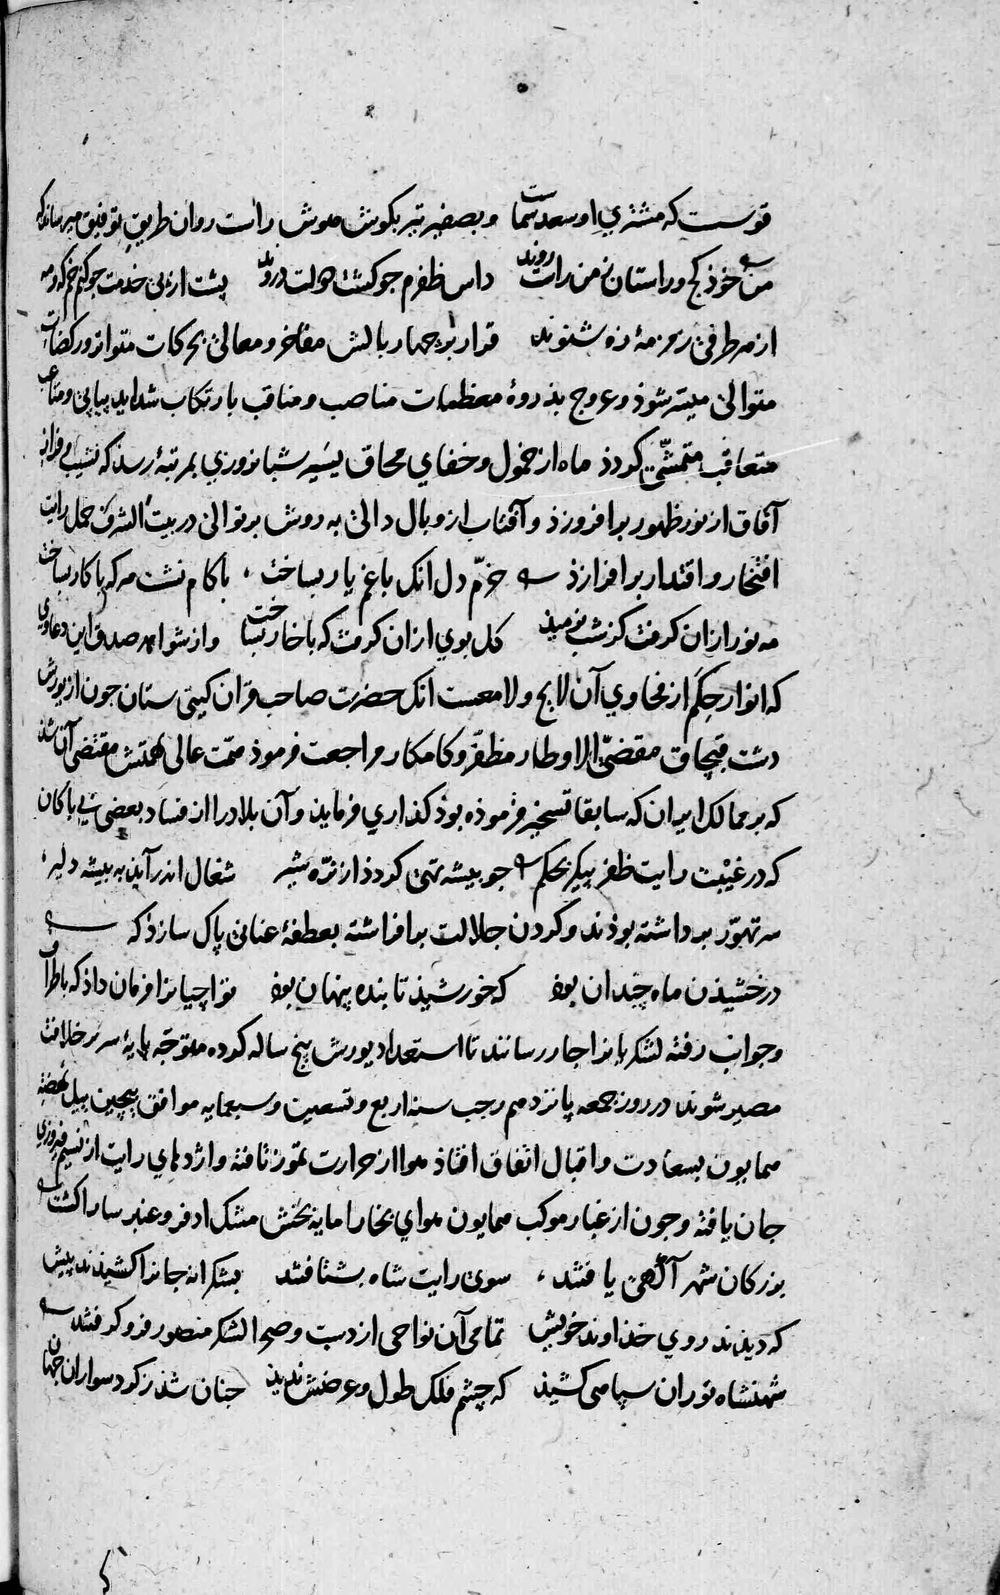 قوست که مشتریِ او سعد سماست و بصفیر تیر بکوش هوش راست روان طریق توفیق میرساند که
من خود کج و راستان ز من راست روند داس ظفرم جو کشت دولت دروند پشت از پی خدمت جو کنم خم که و مه
از هر طرفی زمزمهٔ زه شنوند قرار بر چهار بالش مفاخر و معالی بحرکات متواتر و رکضات
متوالی میسّر شوذ و عروج بذروهٔ معظمات مناصب و مناقب بارتکاب شداید پیاپی و متاعب
متعاقب متمشّی کردد ماه از خمول و خفای محاق بسیر شبانروزی بمرتبهٔ رسد که نشیب و فراز
آفاق از نور ظهور برافروزذ و آفتاب از وبال دالی به روش بر توالی در بیت الشرف حمل رایت
افتخار و اقتدار برافرازذ خرّم دل انک با غم یار بساخت باکام نشست هر که باکار بساخت
مه نور ازان کرفت کز شب نرمید کل بوی ازان کرفت که با خار بساخت و از شواهد صدق این دعاوی
که انوار حِکَم از فحاوی آن لایح و لامعست انک حضرت صاحب قران کیتی ستان جون از یورش
دشت قپچاق مقضّی الاوطار مظفّر و کامکار مراجعت فرموذ همّت عالی نهمتش مقتضی آن شذ
که بر ممالک ایران که سابقا تسخیر فرموذه بوذ کذاری فرماید و آن بلاد را از فساد بعضی بی باکان
که در غیبت رایت ظفر پیکر بحکم جو بیشه تهی کردد از نرّه شیر شغال اندر آید به بیشه دلیر
سر تهوّر برداشته بوذند و کردن جلالت برافراشته بعطفهٔ عنانی پاک سازذ که
درخشیدن ماه چندان بوذ که خورشید تابنده پنهان بوذ تواچیانرا فرمان داذ که باطراف
و جوانب رفته لشکریانرا جار رسانند تا استعداد یورش پنج ساله کرده متوجّه پایهٔ سریر خلافت
مصیر شوند در روز جمعه پانزدهم رجب سنه اربع و تسعین و سبعمایه موافق پیچین ییل نهضت
همایون بسعادت و اقبال اتفاق افتاذ هوا از حرارت تموز تافته و اژدهای رایت از نسیم فیروزی
جان یافته و جون از غبار موکب همایون هوای بخارا مایه بخش مشک اذفر و عنبر سارا کشت
بزرکان شهر آکهی یافتند سوی رایت شاه بشتافتند بشکرانه جانرا کشیذند پیش
که دیذند روی خذاوند خویش تمامی آن نواحی از دست و صحرا لشکر منصور فرو کرفتند
شهنشاه توران سپاهی کشیذ که چشم فلک طول و عرضش ندید جنان شذ ز کرد سواران جهان